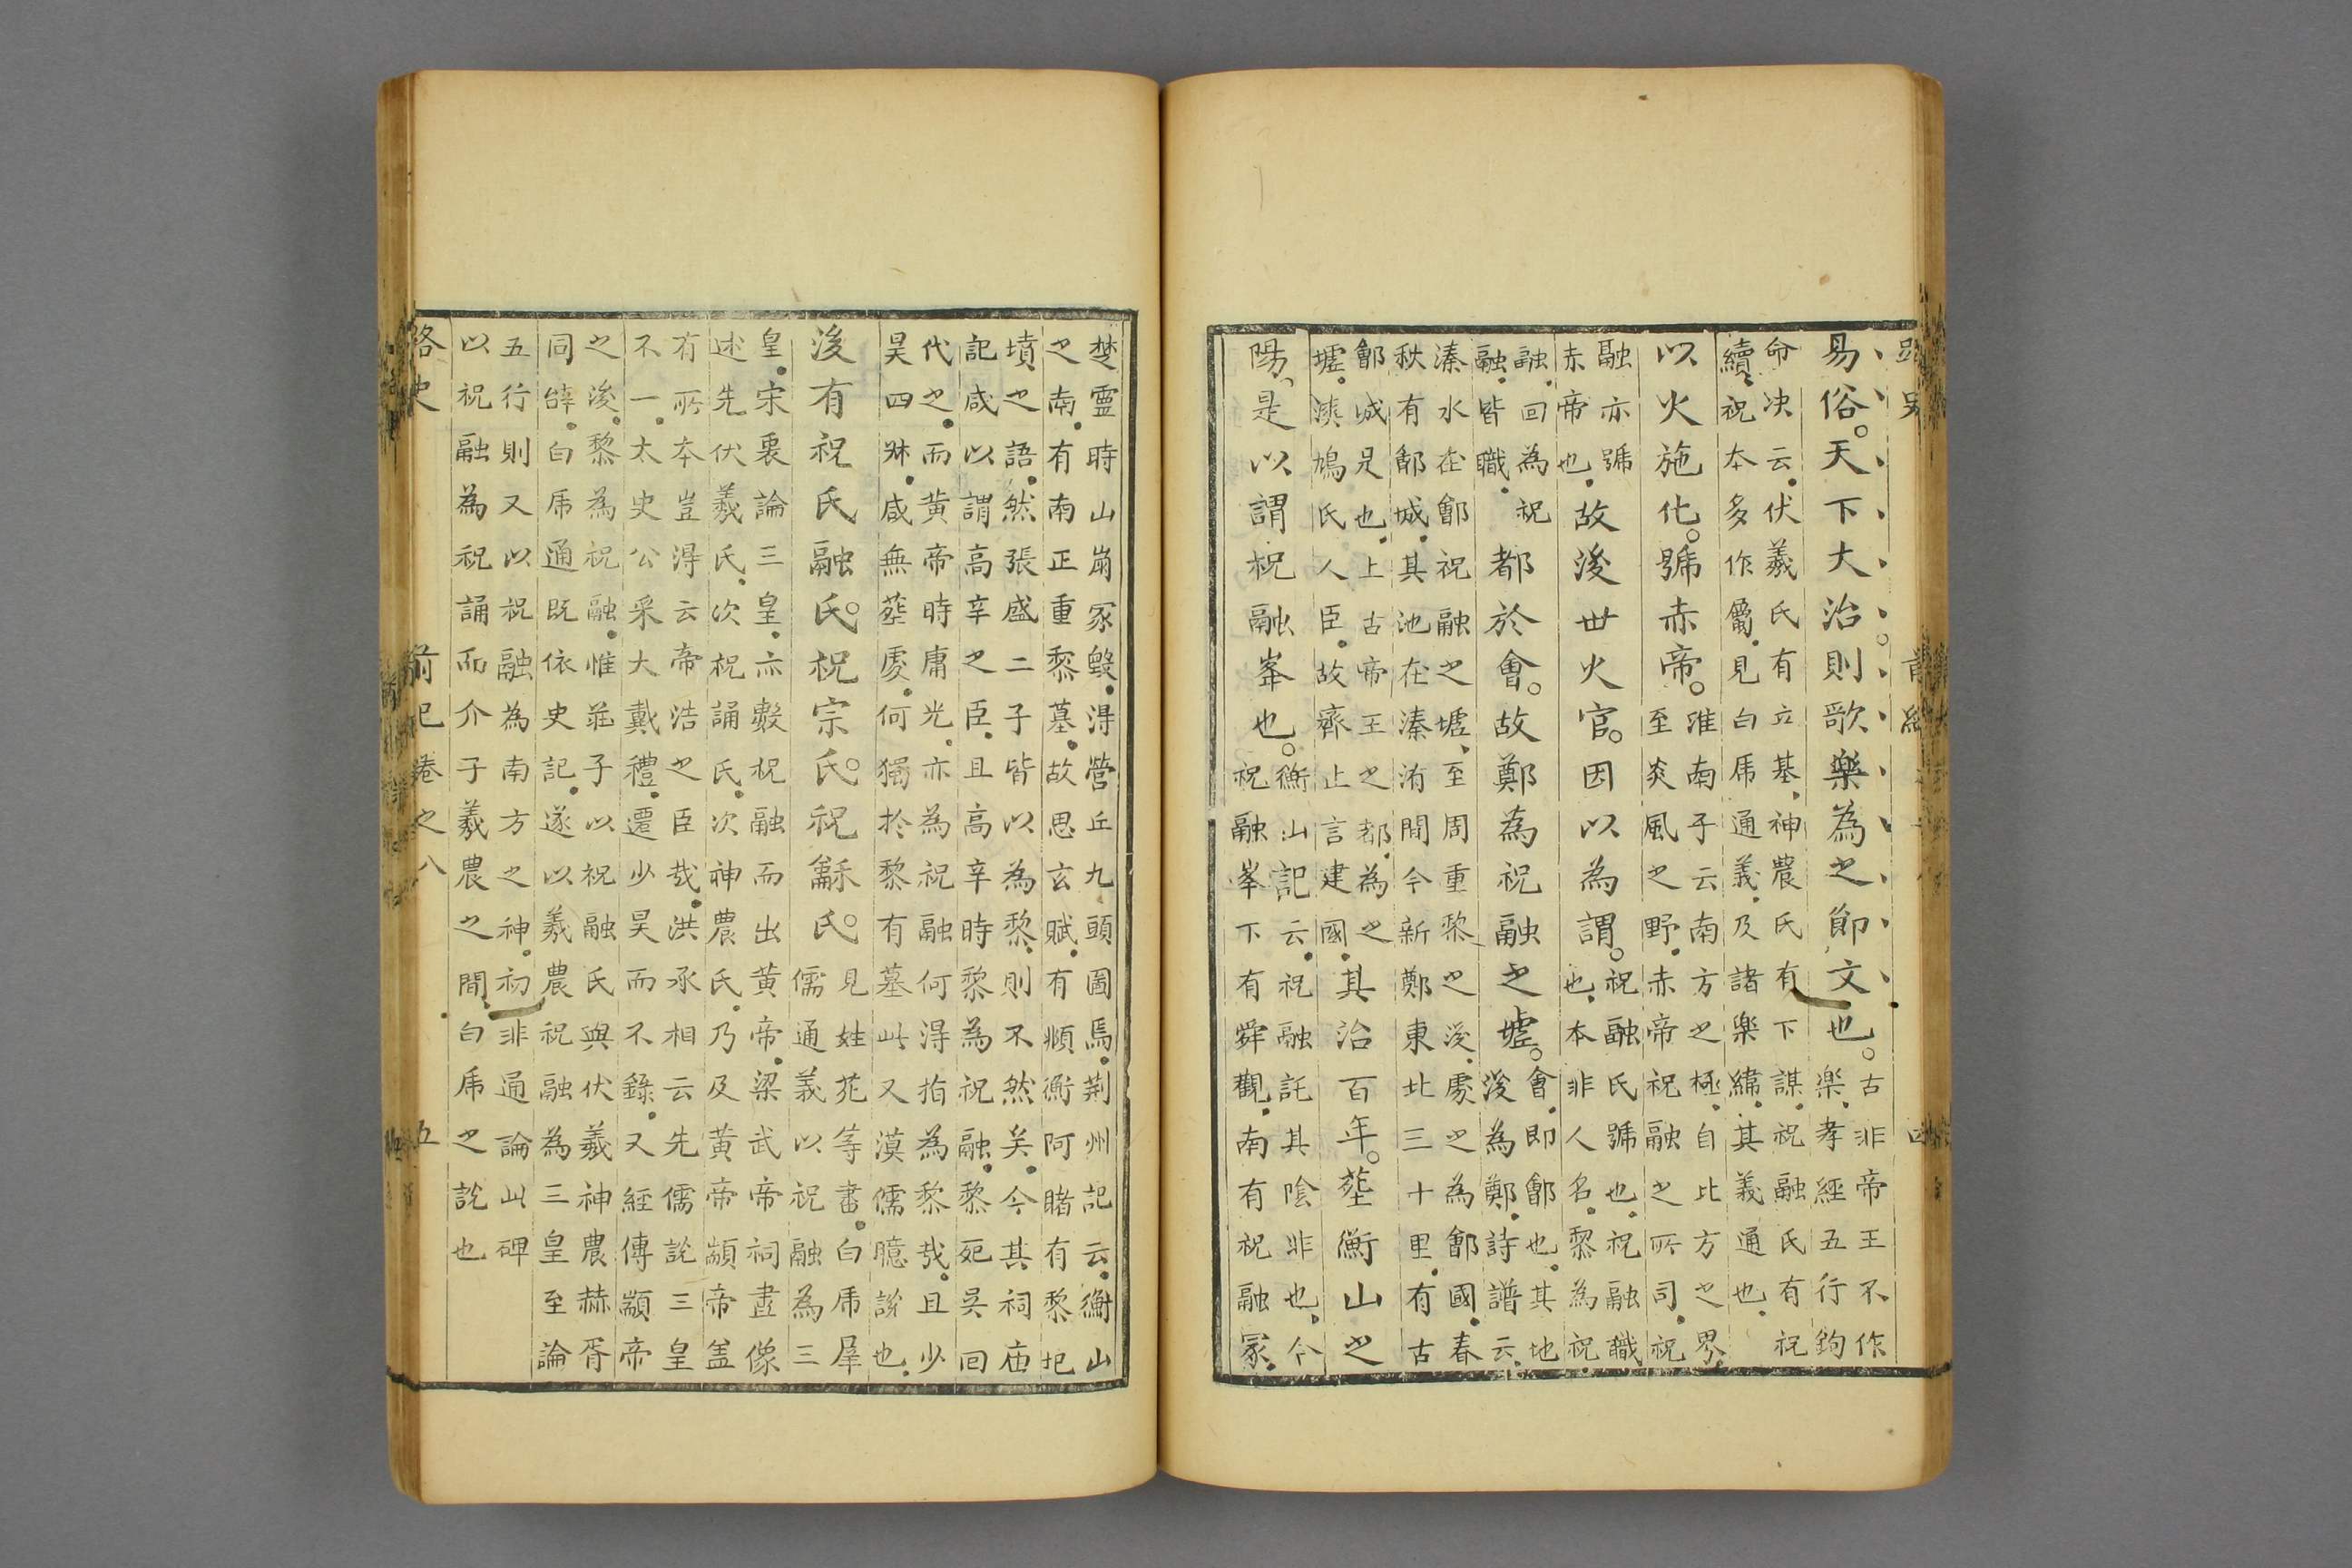 易俗。天下大治。則歌樂為之節文也。古非帝王不作
樂。孝經五行鉤
命决云。伏羲氏有立基。神農氏有下謀。祝融氏有祝
續。祝本多作屬。見白虎通義。及諸樂緯。其義通也。
以火施化。號赤帝。淮南子云南方之極。自北方之界。
至炎風之野。赤帝祝融之所司。祝
融亦號
赤帝也。故後世火官。因以為謂。祝融氏號也。祝融職
也。本非人名。黎為祝
融。回為祝
融。皆職。都於會。故鄭為祝融之墟。會。即鄶也。其地
後為鄭。詩譜云。
溱水在鄶祝融之墟。至周重黎之後。處之為鄶國。春
秋有鄶城。其池在溱洧間今新鄭東北三十里。有古
鄶城是也。上古帝王之都。為之
墟。溱鳩氏人臣。故齊止言建國。其治百年。葬衡山之
陽。是以謂祝融峯也。衡山記云。祝融託其陰非也。今
祝融峯下有舜觀。南有祝融冢。
楚靈時山崩冢毀。得營丘九頭圖焉。荆州記云。衡山
之南。有南正重黎墓。故思玄賦。有順衡阿睹有黎圯
墳之語。然張盛二子皆以為黎。則不然矣。今其祠庙
記咸以謂高辛之臣。且高辛時黎為祝融。黎死吴回
代之。而黄帝時庸光。亦為祝融何得指為黎哉。且少
昊四叔。咸無葬處。何獨於黎有墓此又漠儒臆說也。
後有祝氏融氏。祝宗氏。祝龢氏。見姓苑等書。白虎羣
儒通義以祝融為三
皇。宋裏論三皇。亦數祝融而出黄帝。梁武帝祠畫像
述先伏羲氏。次祝誦氏。次神農氏。乃及黄帝顓帝盖
有所本豈得云帝浩之臣哉。洪承相云先儒說三皇
不一。太史公采大戴禮。遷少昊而不錄。又經傳顓帝
之後。黎為祝融。惟莊子以祝融氏與伏羲神農赫胥
同辞。白虎通既依史記。遂以羲農祝融為三皇至論
五行則又以祝融為南方之神。初非通論此碑
以祝融為祝誦而介子羲農之間白虎之說也
路史　前紀卷之八　五